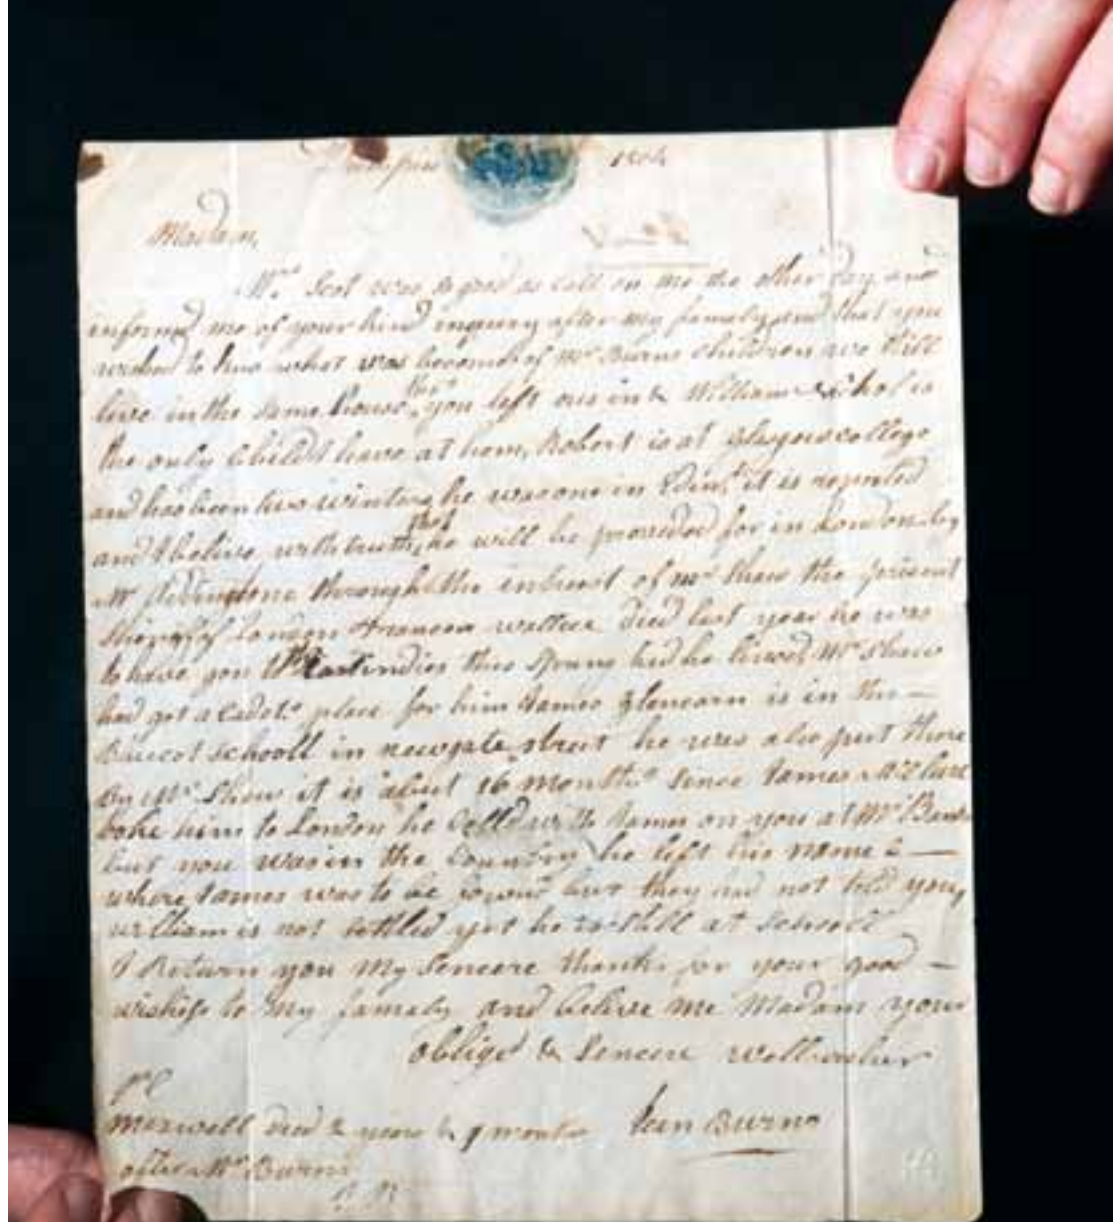 Dumfries 1804
Madam,
Mr. Scot was so good as call on me the other day and
informed me of your kind inquiry after my famely and that you
wished to know what was become of Mr Burns children we still
live in the same house that you left us in & William Nichol is
the only child I have at hom, Robert is at Glasgow college
and has been two winters, he was one in Edinr it is reported
and I belive with truth that he will be provided for in London by
Mr through the intrest of Mr Shaw the present
of London Wallace died last year he was
to have gon to the East indies this spring had he lived, Mr Shaw
had got a Cadets place for him James Glencarn is in the —
schooll in newgate street he was also put there
By Mr. Shaw it is about 16 months since James McClure
toke him to London he Calld with James on you at Mr
but you was in the Country he left his name & —
where James was to be found but they had not told you,
William is not settled yet he is still at schooll
I Return you My Sencere thanks for your good —
wishes to my famely and belive me Madam your
obliged & Sencere wellwisher
Jean Burns
Maxwell died 2 years & 9 months
after Mr Burns